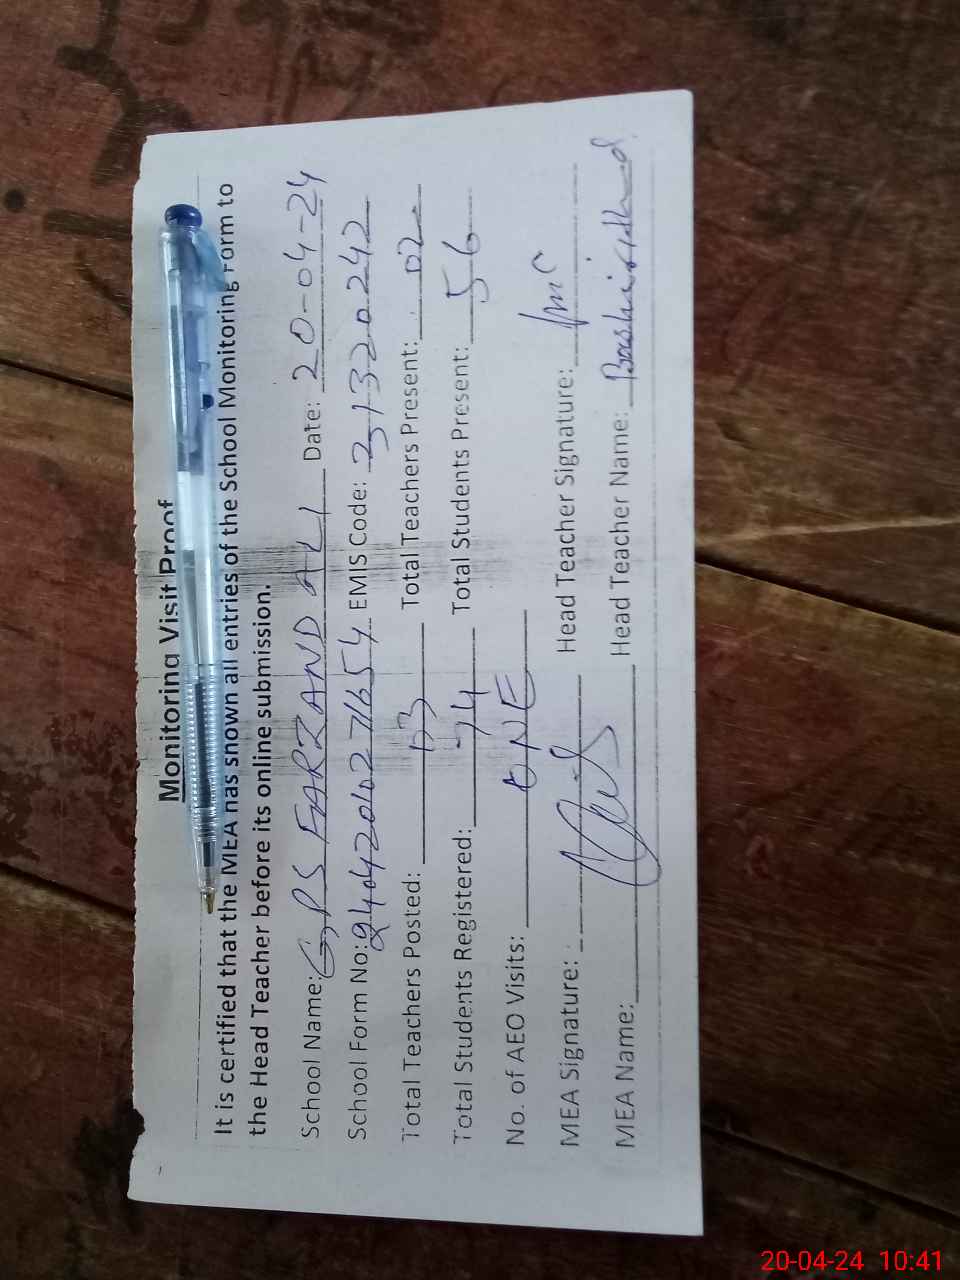 Monitoring Visit Proof
It is certified that the MEA has shown all entries of the School Monitoring Form to
the Head Teacher before its online submission.
School Name: GPS FARZAND ALI Date: 20-04-24
School Form No: EMIS Code: 31320242
Total Teachers Posted: 03 Total Teachers Present: 02
Total Students Registered: 74 Total Students Present: 56
No. of AEO Visits: ONE
MEA Signature: Head Teacher Signature:
MEA Name: Head Teacher Name:
20-04-24 10:41